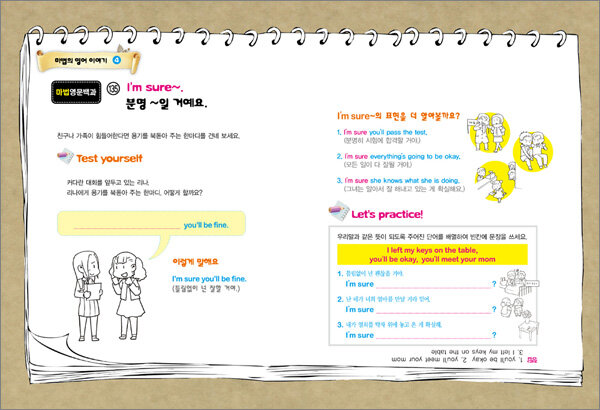 마법의 영어 이야기 4
마법영문백과
135
I'm sure~.
분명 ~일 거예요.
친구나 가족이 힘들어한다면 용기를 북돋아 주는 한마디를 건네 보세요.
Test yourself
커다란 대회를 앞두고 있는 리나.
리나에게 용기를 북돋아 주는 한마디, 어떻게 할까요?
you'll be fine.
이렇게 말해요
I'm sure you'll be fine.
(틀림없이 넌 잘할 거야.)
I'm sure~의 표현을 더 알아볼까요?
1. I'm sure you'll pass the test.
(분명히 시험에 합격할 거야.)
2. I'm sure everything's going to be okay.
(모든 일이 다 잘될 거야.)
3. I'm sure she knows what she is doing.
(그녀는 알아서 잘 해내고 있는 게 확실해요.)
Let's practice!
우리말과 같은 뜻이 되도록 주어진 단어를 배열하여 빈칸에 문장을 쓰세요.
I left my keys on the table,
you'll be okay, you'll meet your mom
1. 틀림없이 넌 괜찮을 거야.
I'm sure ?
2. 난 네가 너희 엄마를 만날 거라 믿어.
I'm sure ?
3. 내가 열쇠를 탁자 위에 놓고 온 게 확실해.
I'm sure ?
정답 1. you'll be okay 2. you'll meet your mom
3. I left my keys on the table